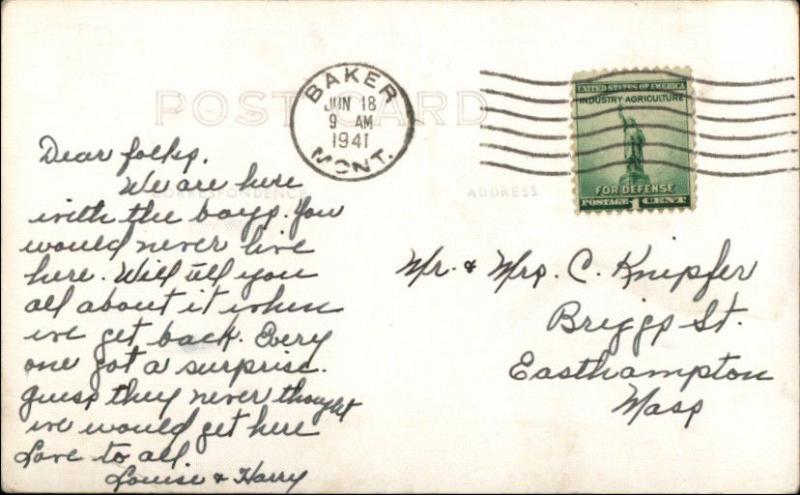 POST CARD
CORRESPONDENCE
ADDRESS
BAKER
JUN 18
9 AM
1941
MONT.
UNITED STATES OF AMERICA
INDUSTRY AGRICULTURE
FOR DEFENSE
POSTAGE 1 CENT
Dear folks.
We are here
with the boys. You
would never live
here. Will tell you
all about it when
we get back. Every
one got a surprise.
guess they never thought
we would get here
Love to all
Louise & Harry
Mr. & Mrs. C. Knipfer
Briggs St.
Easthampton
Mass